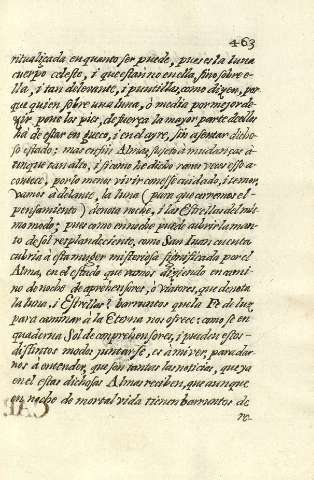 463
ritualizada en quanto ser puede, pues es la luna
cuerpo celeste, i que están no en ella, sino sobre e-
lla, i tan de levante, i puntillas, como dizen, por
que quien sobre una luna, ò media por mejor de-
zir pone los pies, de fuerça la mayor parte de ellos
ha de estar en gueco, i en el ayre, sin asentar dicho-
so estado; mas en fin Almas sujetas à mudanças à-
tinque tan alto, i si como he dicho raras veces esso a-
contece, por lo menos vivir con esse cuidado, i temor,
vamos adelante, la luna (para que carremos el
pensamiento) denota noche, i las Estrellas del mis
mo modo; pues como en noche puede cubrirla man-
to de sol resplandeciente, como San Iuan cuenta
cubria à esta muger misteriosa significada por el
Alma, en el estado que vamos diziendo en cami
no de noche de aprehensores, ò viatores, que denota
la luna, i Estrellas? barruntos que la Fe de luz
para caminar à la Eterna nos ofrece; como se en
quaderna Sol de comprehensores, i pueden estos
distintos modos juntarse, es à mi ver, para dar
nos à entender, que son tantas las noticias, que ya
en el estas dichosas Almas reciben, que aunque
en noche de mortal vida tienen barruntos de
re-
CAP.